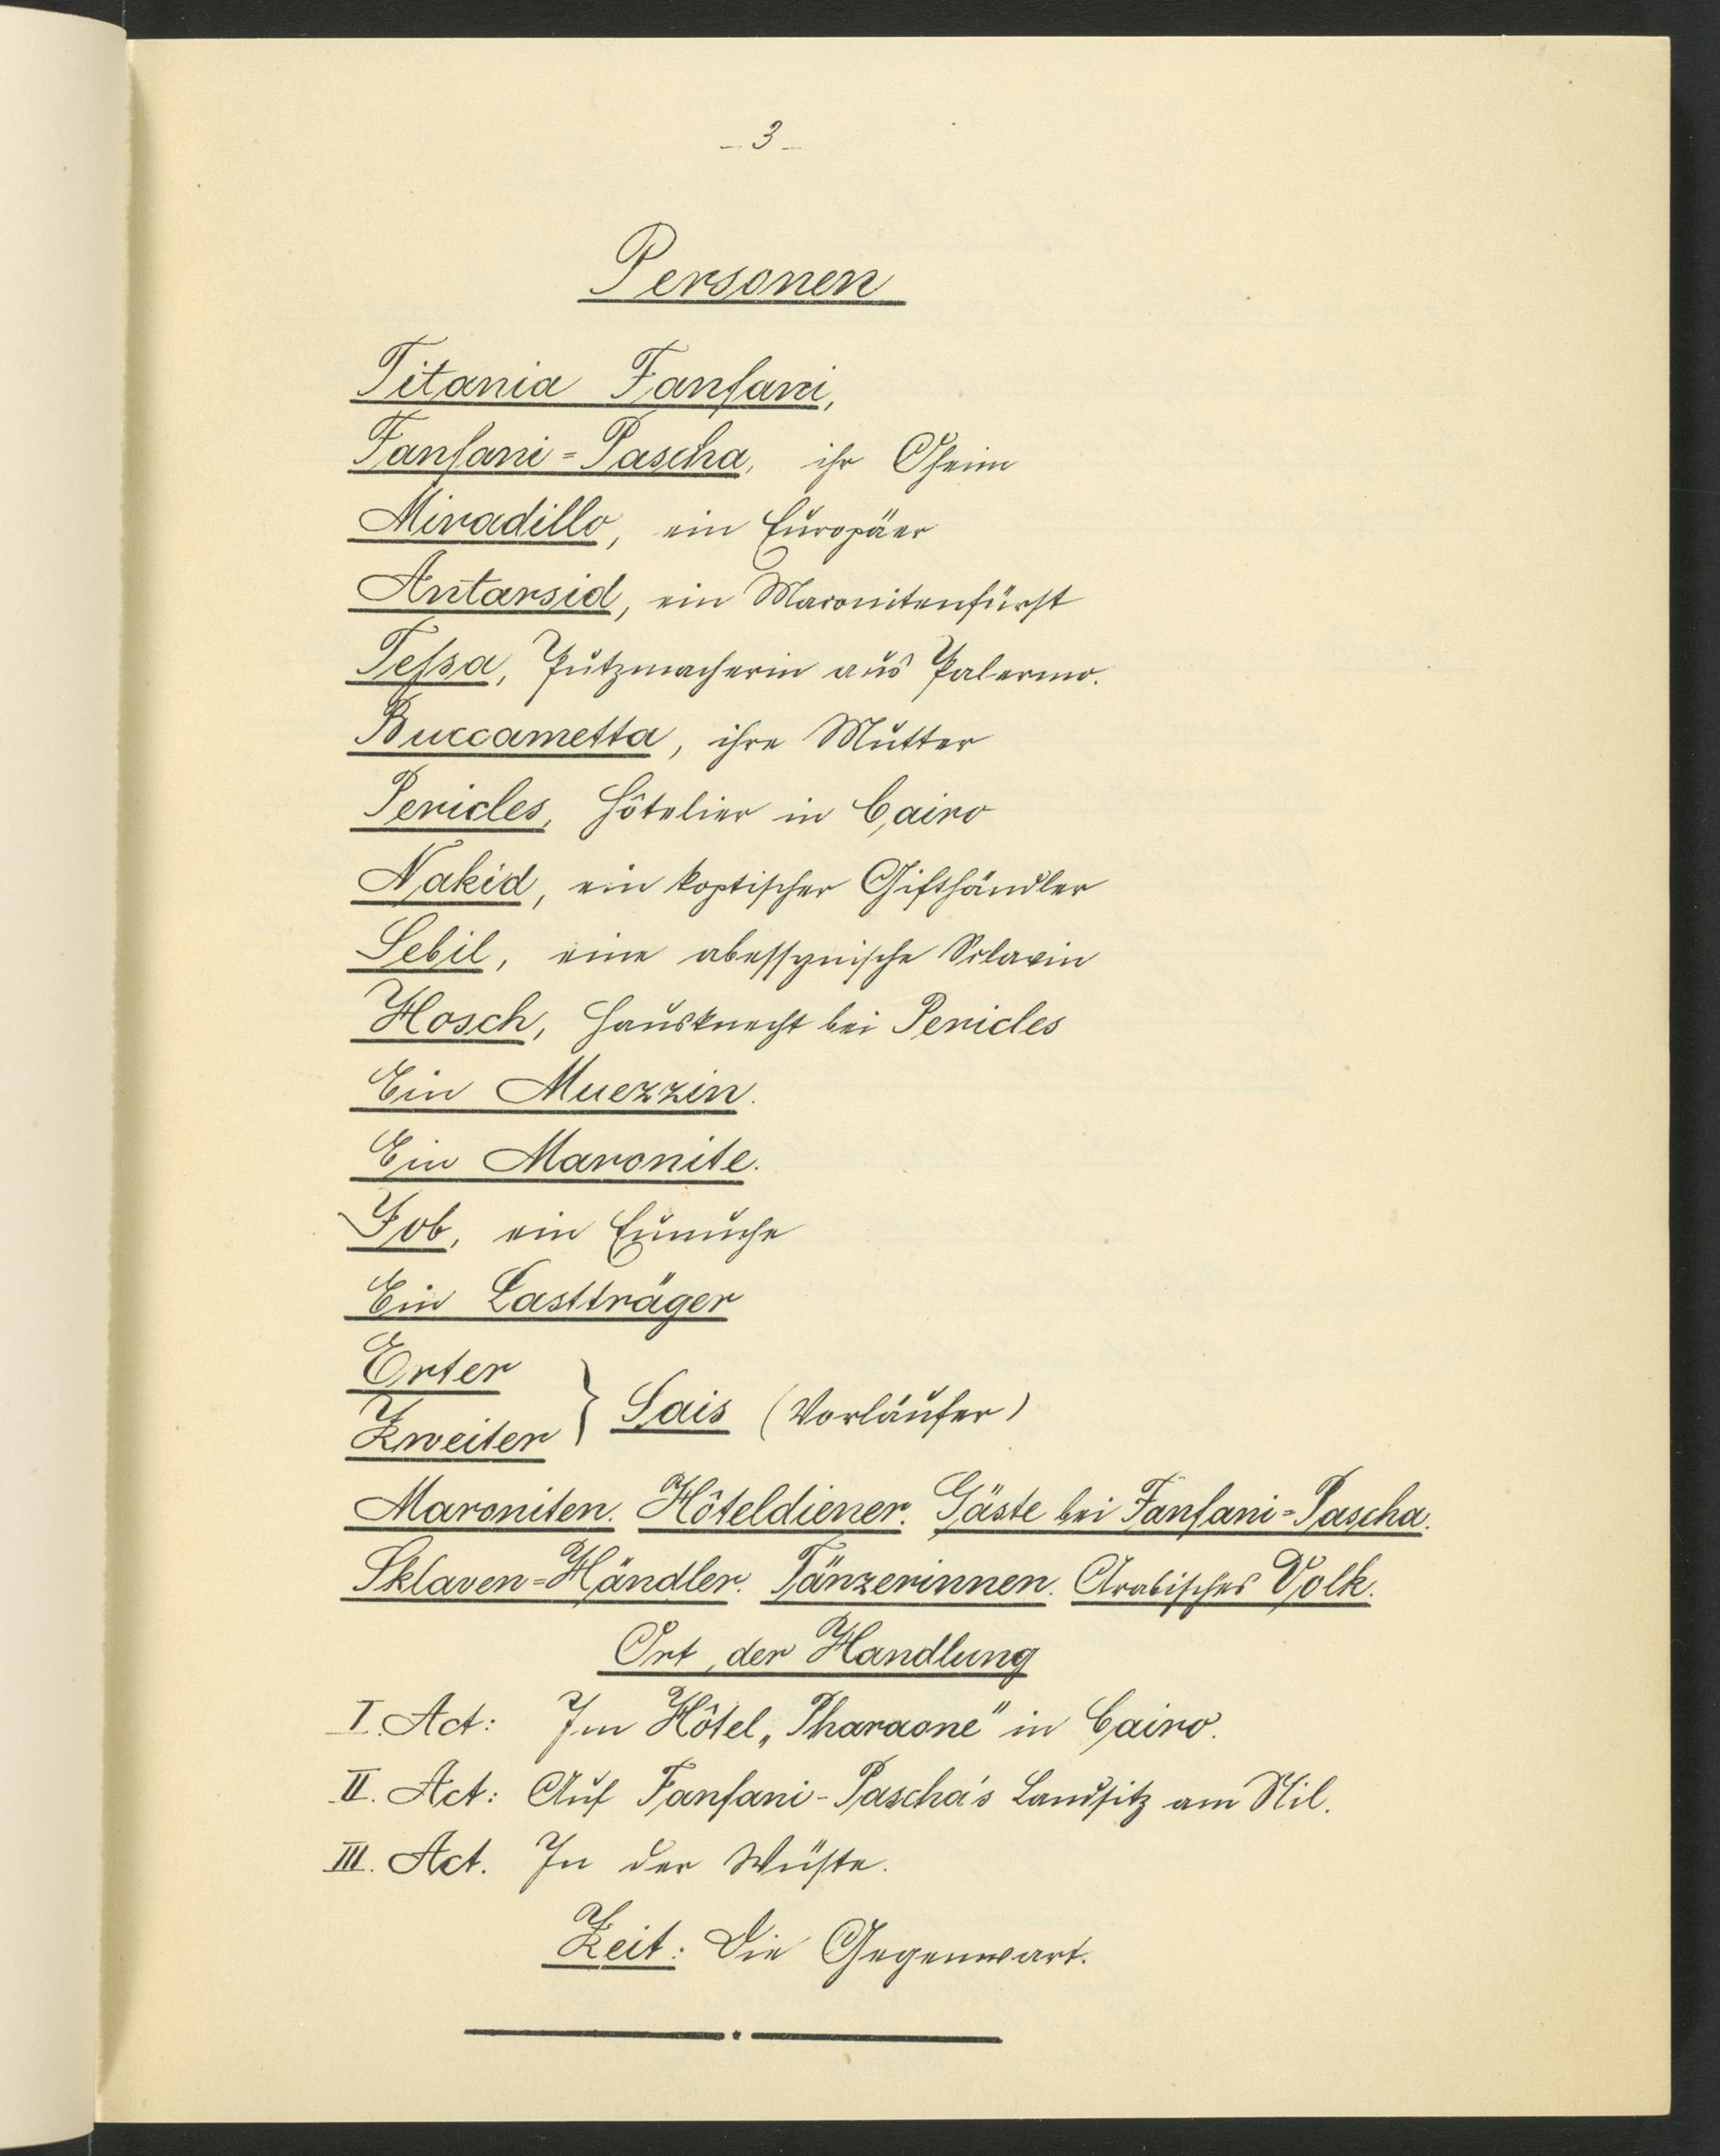 - 3 -
Personen
Titania Fanfani,
Fanfani=Pascha, ihr Oheim
Miradillo, ein Europäer
Antarsid, ein Maronitenfürst
Tessa, Putzmacherin aus Palermo.
Buccametta, ihre Mutter
Pericles, Hôtelier in Cairo
Nakid, ein koptischer Gifthändler
Sebil, eine abessynische Sclavin
Hosch, Hausknecht bei Pericles
Ein Muezzin.
Ein Maronite.
Job, ein Eunuche
Ein Lastträger
Erter
Zweiter } Sais (Vorläufer)
Maroniten. Hôteldiener. Gäste bei Fanfani=Pascha.
Sklaven=Händler. Tänzerinnen. Arabisches Volk.
Ort der Handlung
I. Act: Im Hôtel „Pharaone" in Cairo.
II. Act: Auf Fanfani-Pascha's Landsitz am Nil.
III. Act. In der Wüste.
Zeit: Die Gegenwart.